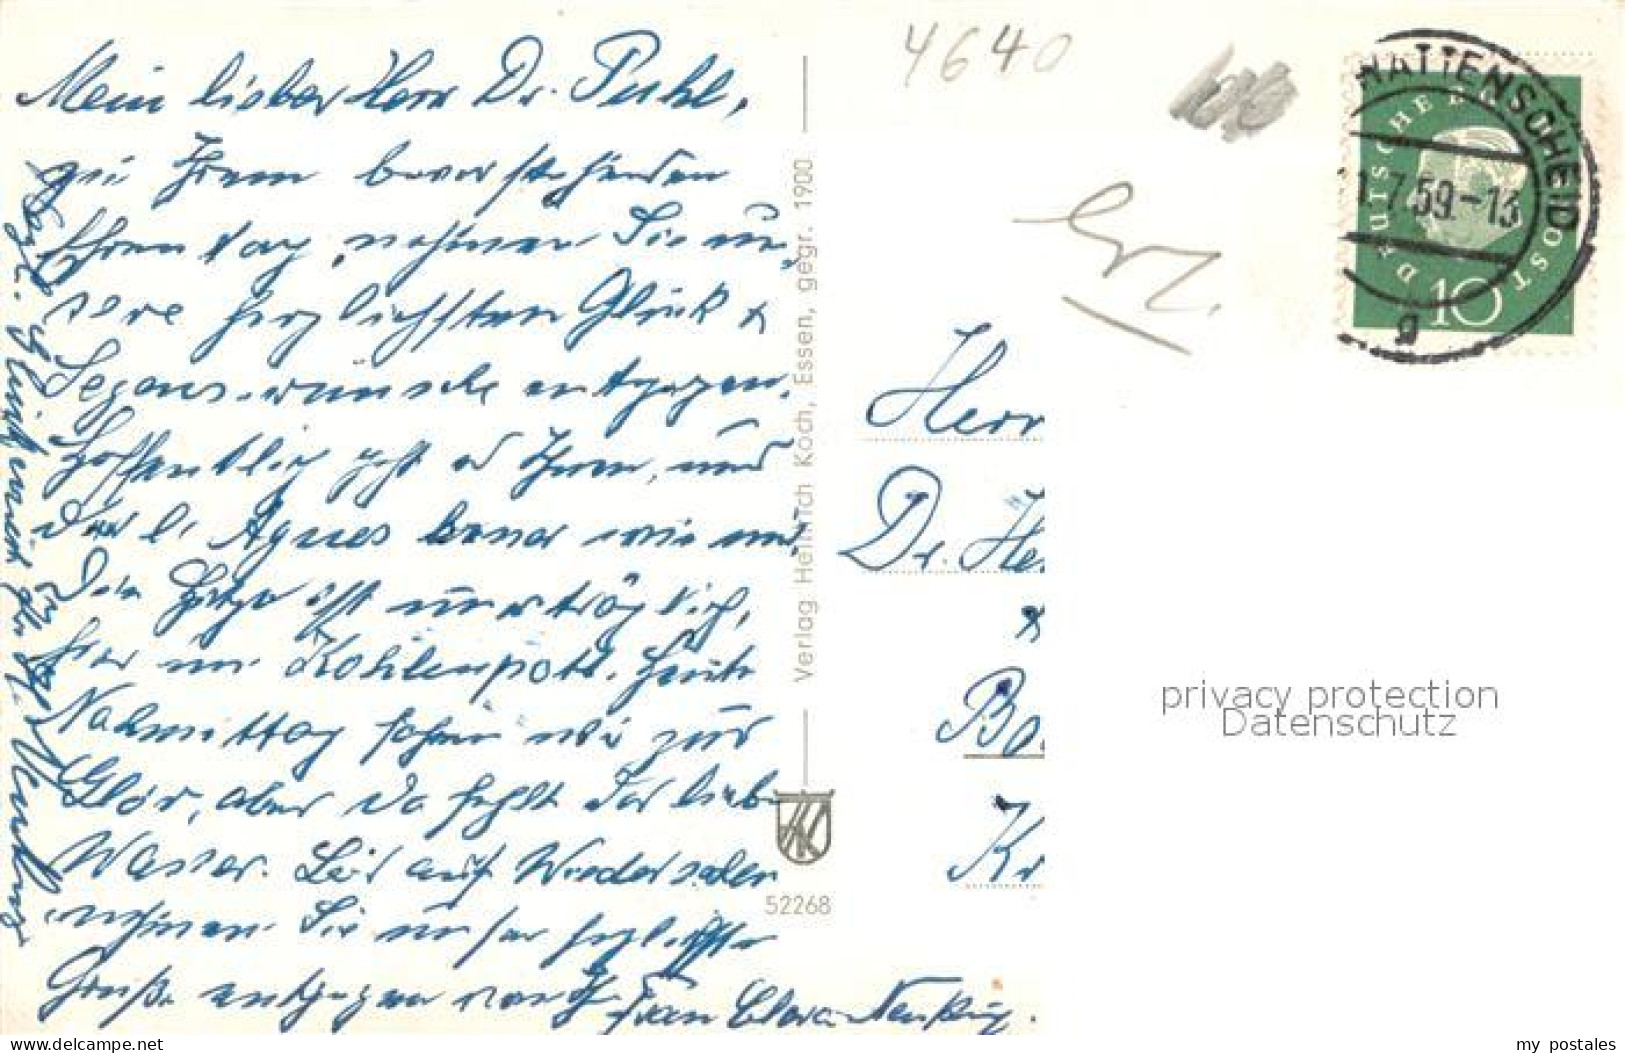 4640
Mein lieber Herr Dr. Puhl,
zu Ihrem bevorstehenden
Ehrentag, nehmen Sie un-
sere herzlichsten Glück &
Segenswünsche entgegen.
Hoffentlich geht es Ihnen, und
Agnes besser wie uns
Die Hitze ist unerträglich,
hier im Kohlenpott. Heute
Nachmittag fahren wir zur
Glör, aber da fehlt das liebe
Wasser. Bis auf Wiedersehen
nehmen Sie unsere herzlichsten
Grüße entgegen von Ihr
Frau Clara
Herzl.
Verlag Heinrich Koch, Essen, gegr. 1900
HK
52268
WATTENSCHEID
1.7.59.-13
g
DEUTSCHE BUNDESPOST
10
Herr
Dr. He
Bo
Kr
privacy protection
Datenschutz
delcampe.net
my_postales